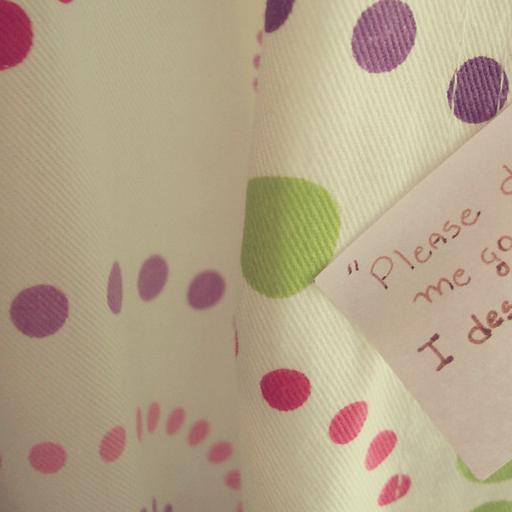 "Please
me go
I des